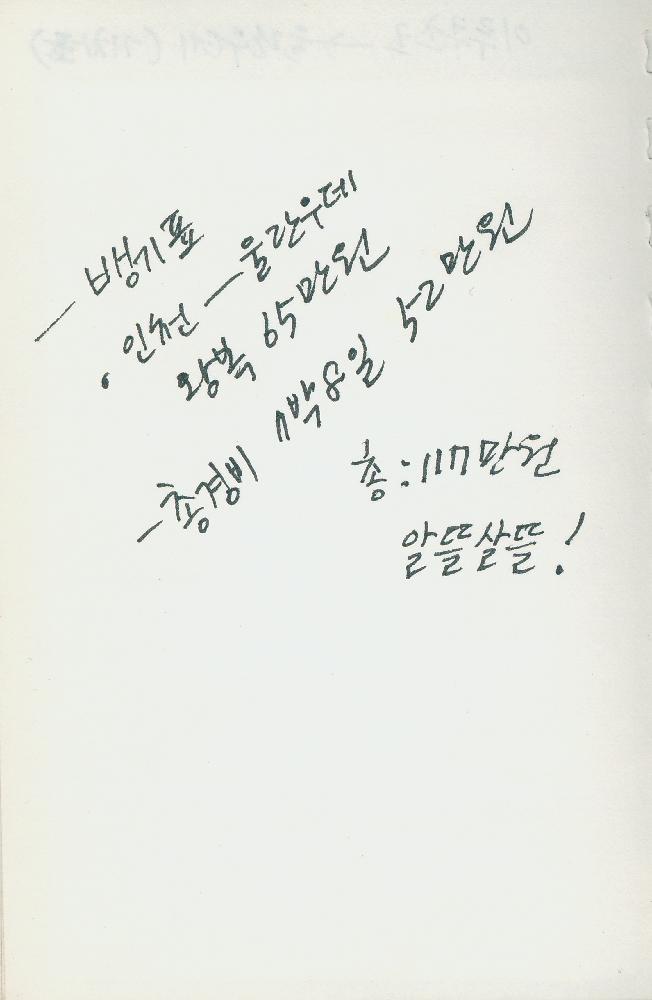 — 뱅기표
• 인천 — 울란우데
왕복 65만원
— 총경비 7박8일 52만원
총 : 117만원
알뜰살뜰!